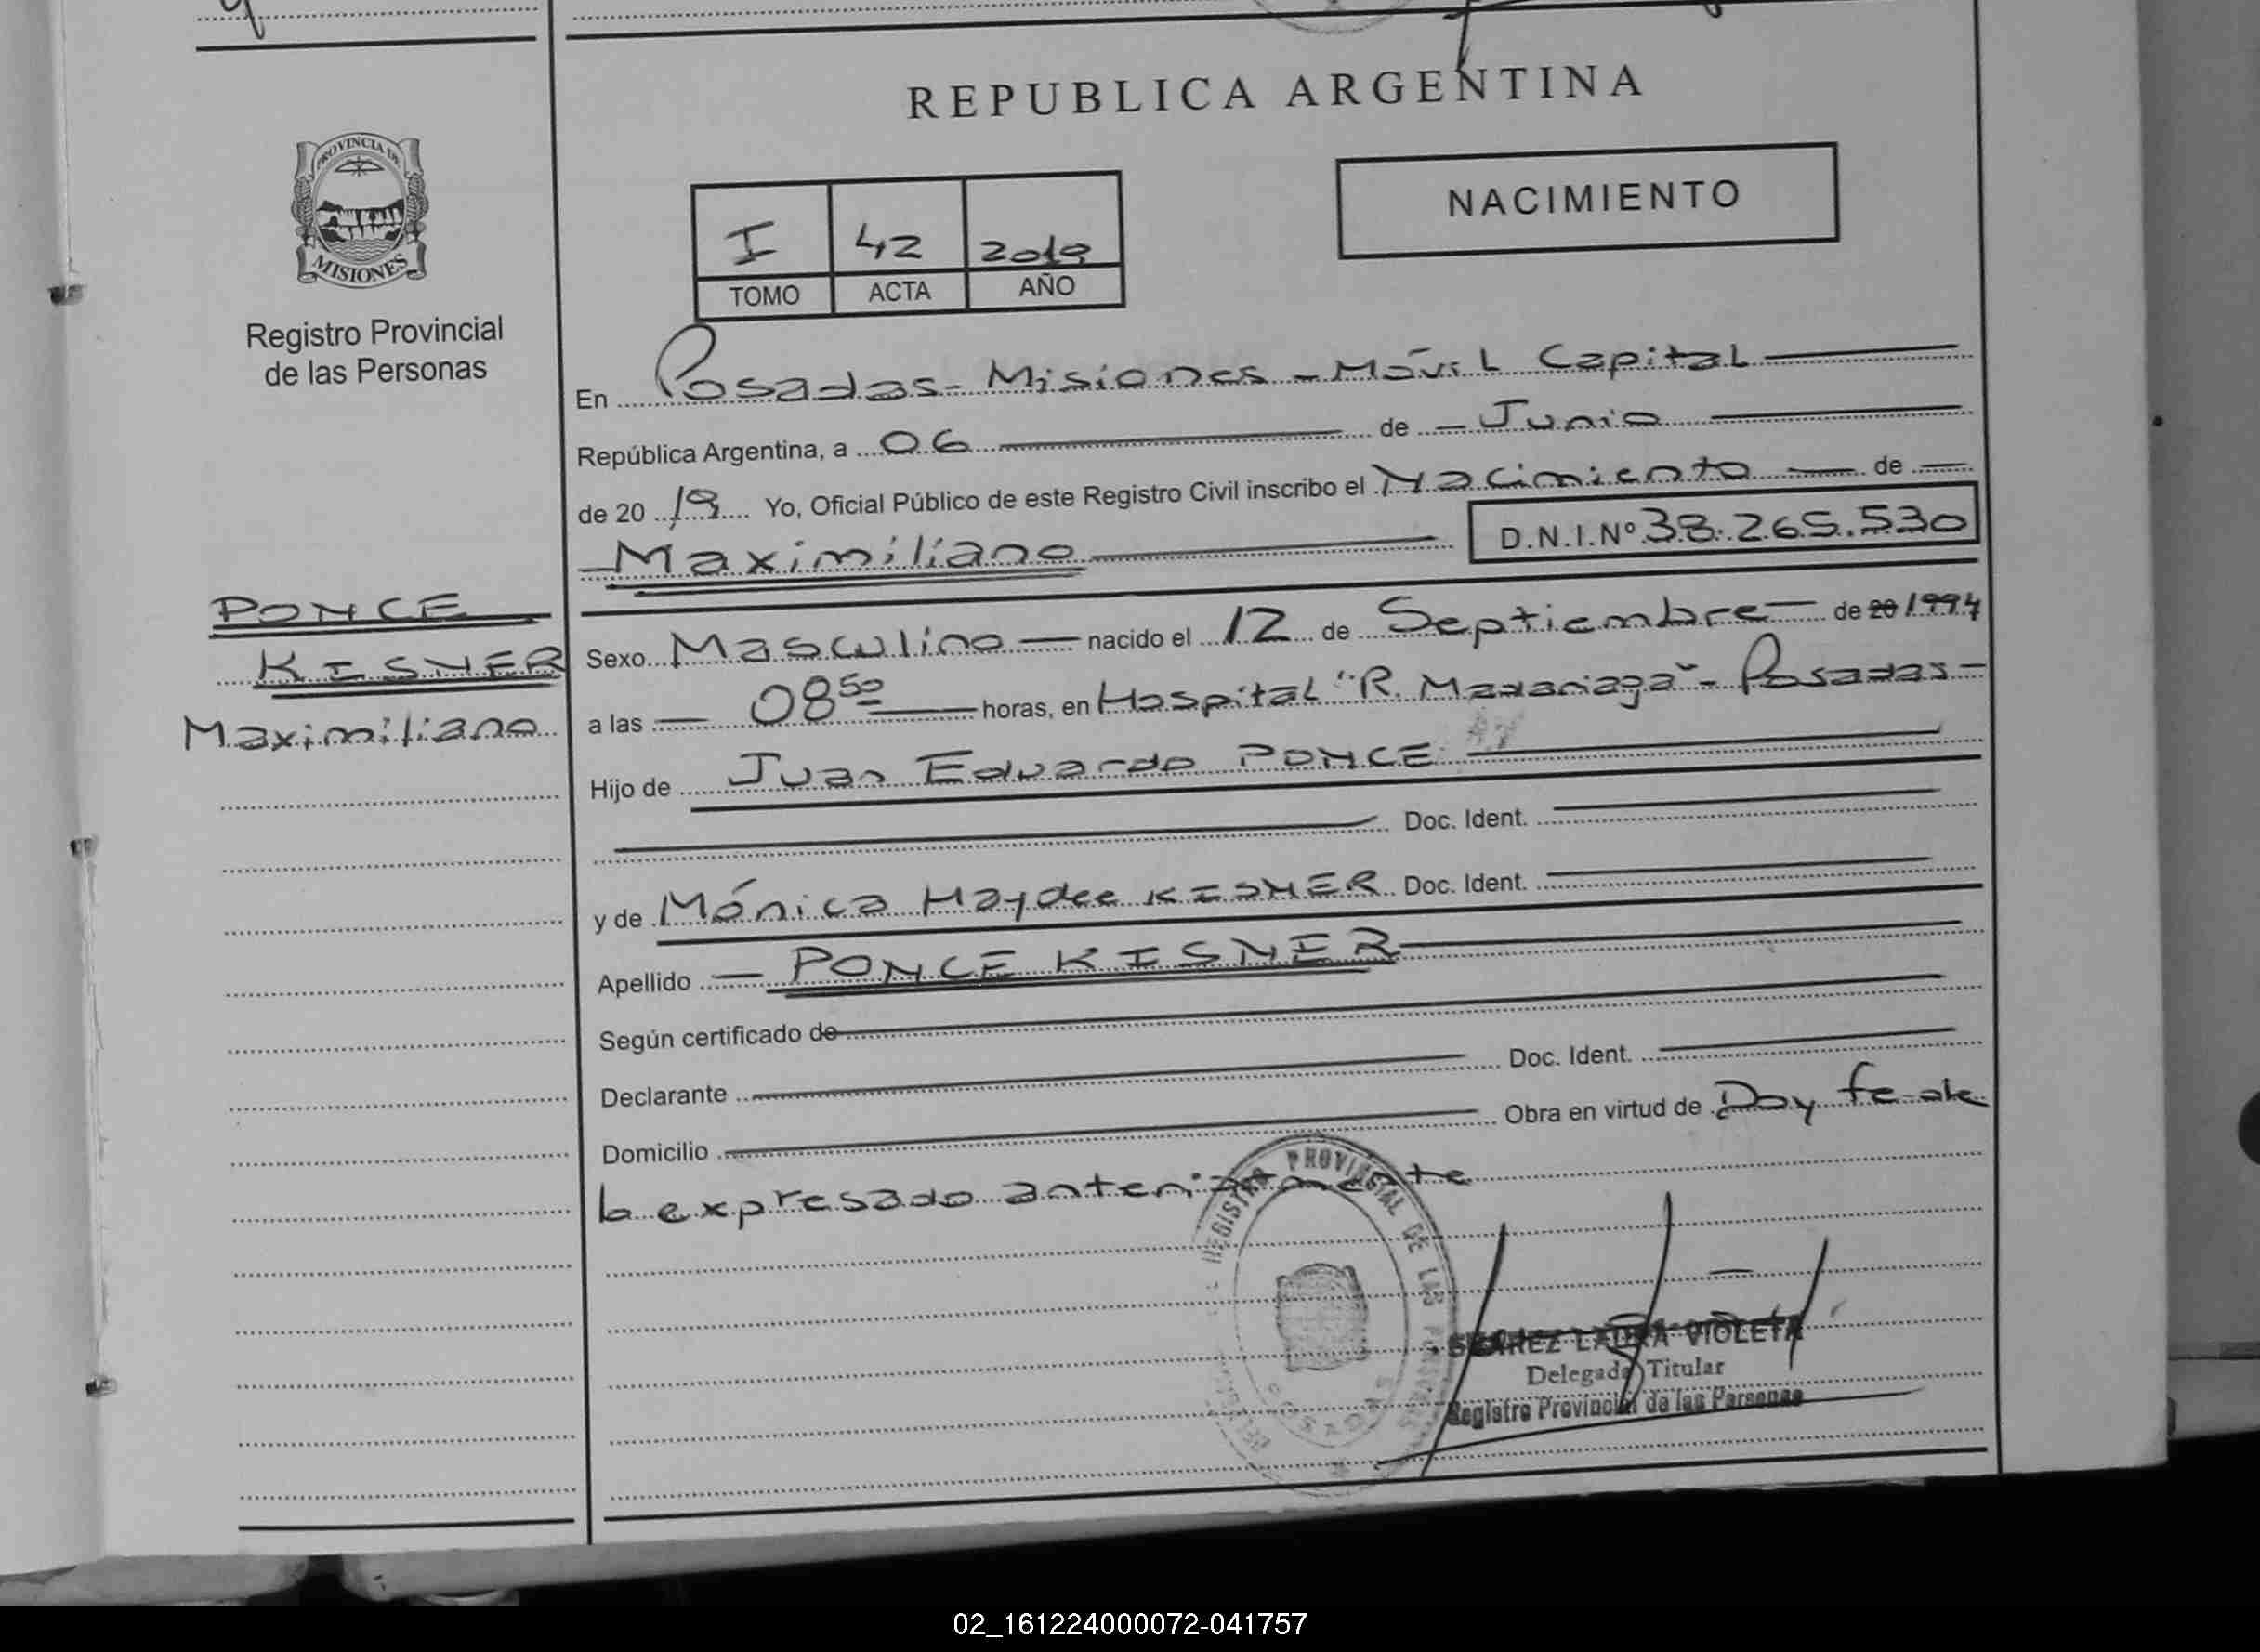 REPUBLICA ARGENTINA
NACIMIENTO
I 42 2019
TOMO ACTA AÑO
PROVINCIA DE
MISIONES
Registro Provincial
de las Personas
En Posadas - Misiones - Móvil Capital
República Argentina, a 06 de Junio
de 20 19 Yo, Oficial Público de este Registro Civil inscribo el Nacimiento de
Maximiliano D.N.I.Nº 38.265.530
PONCE
KISNER
Maximiliano
Sexo Masculino nacido el 12 de Septiembre de 20 1994
a las 08 50 horas, en Hospital "R. Madariaga" - Posadas -
Hijo de Juan Eduardo PONCE
Doc. Ident.
y de Mónica Haydee KISNER Doc. Ident.
Apellido PONCE KISNER
Según certificado de
Declarante Doc. Ident.
Domicilio Obra en virtud de Doy fe de
lo expresado anteriormente
REGISTRO PROVINCIAL DE LAS PERSONAS
POSADAS
LAURA VIOLETA
Delegada Titular
Registro Provincial de las Personas
02_161224000072-041757